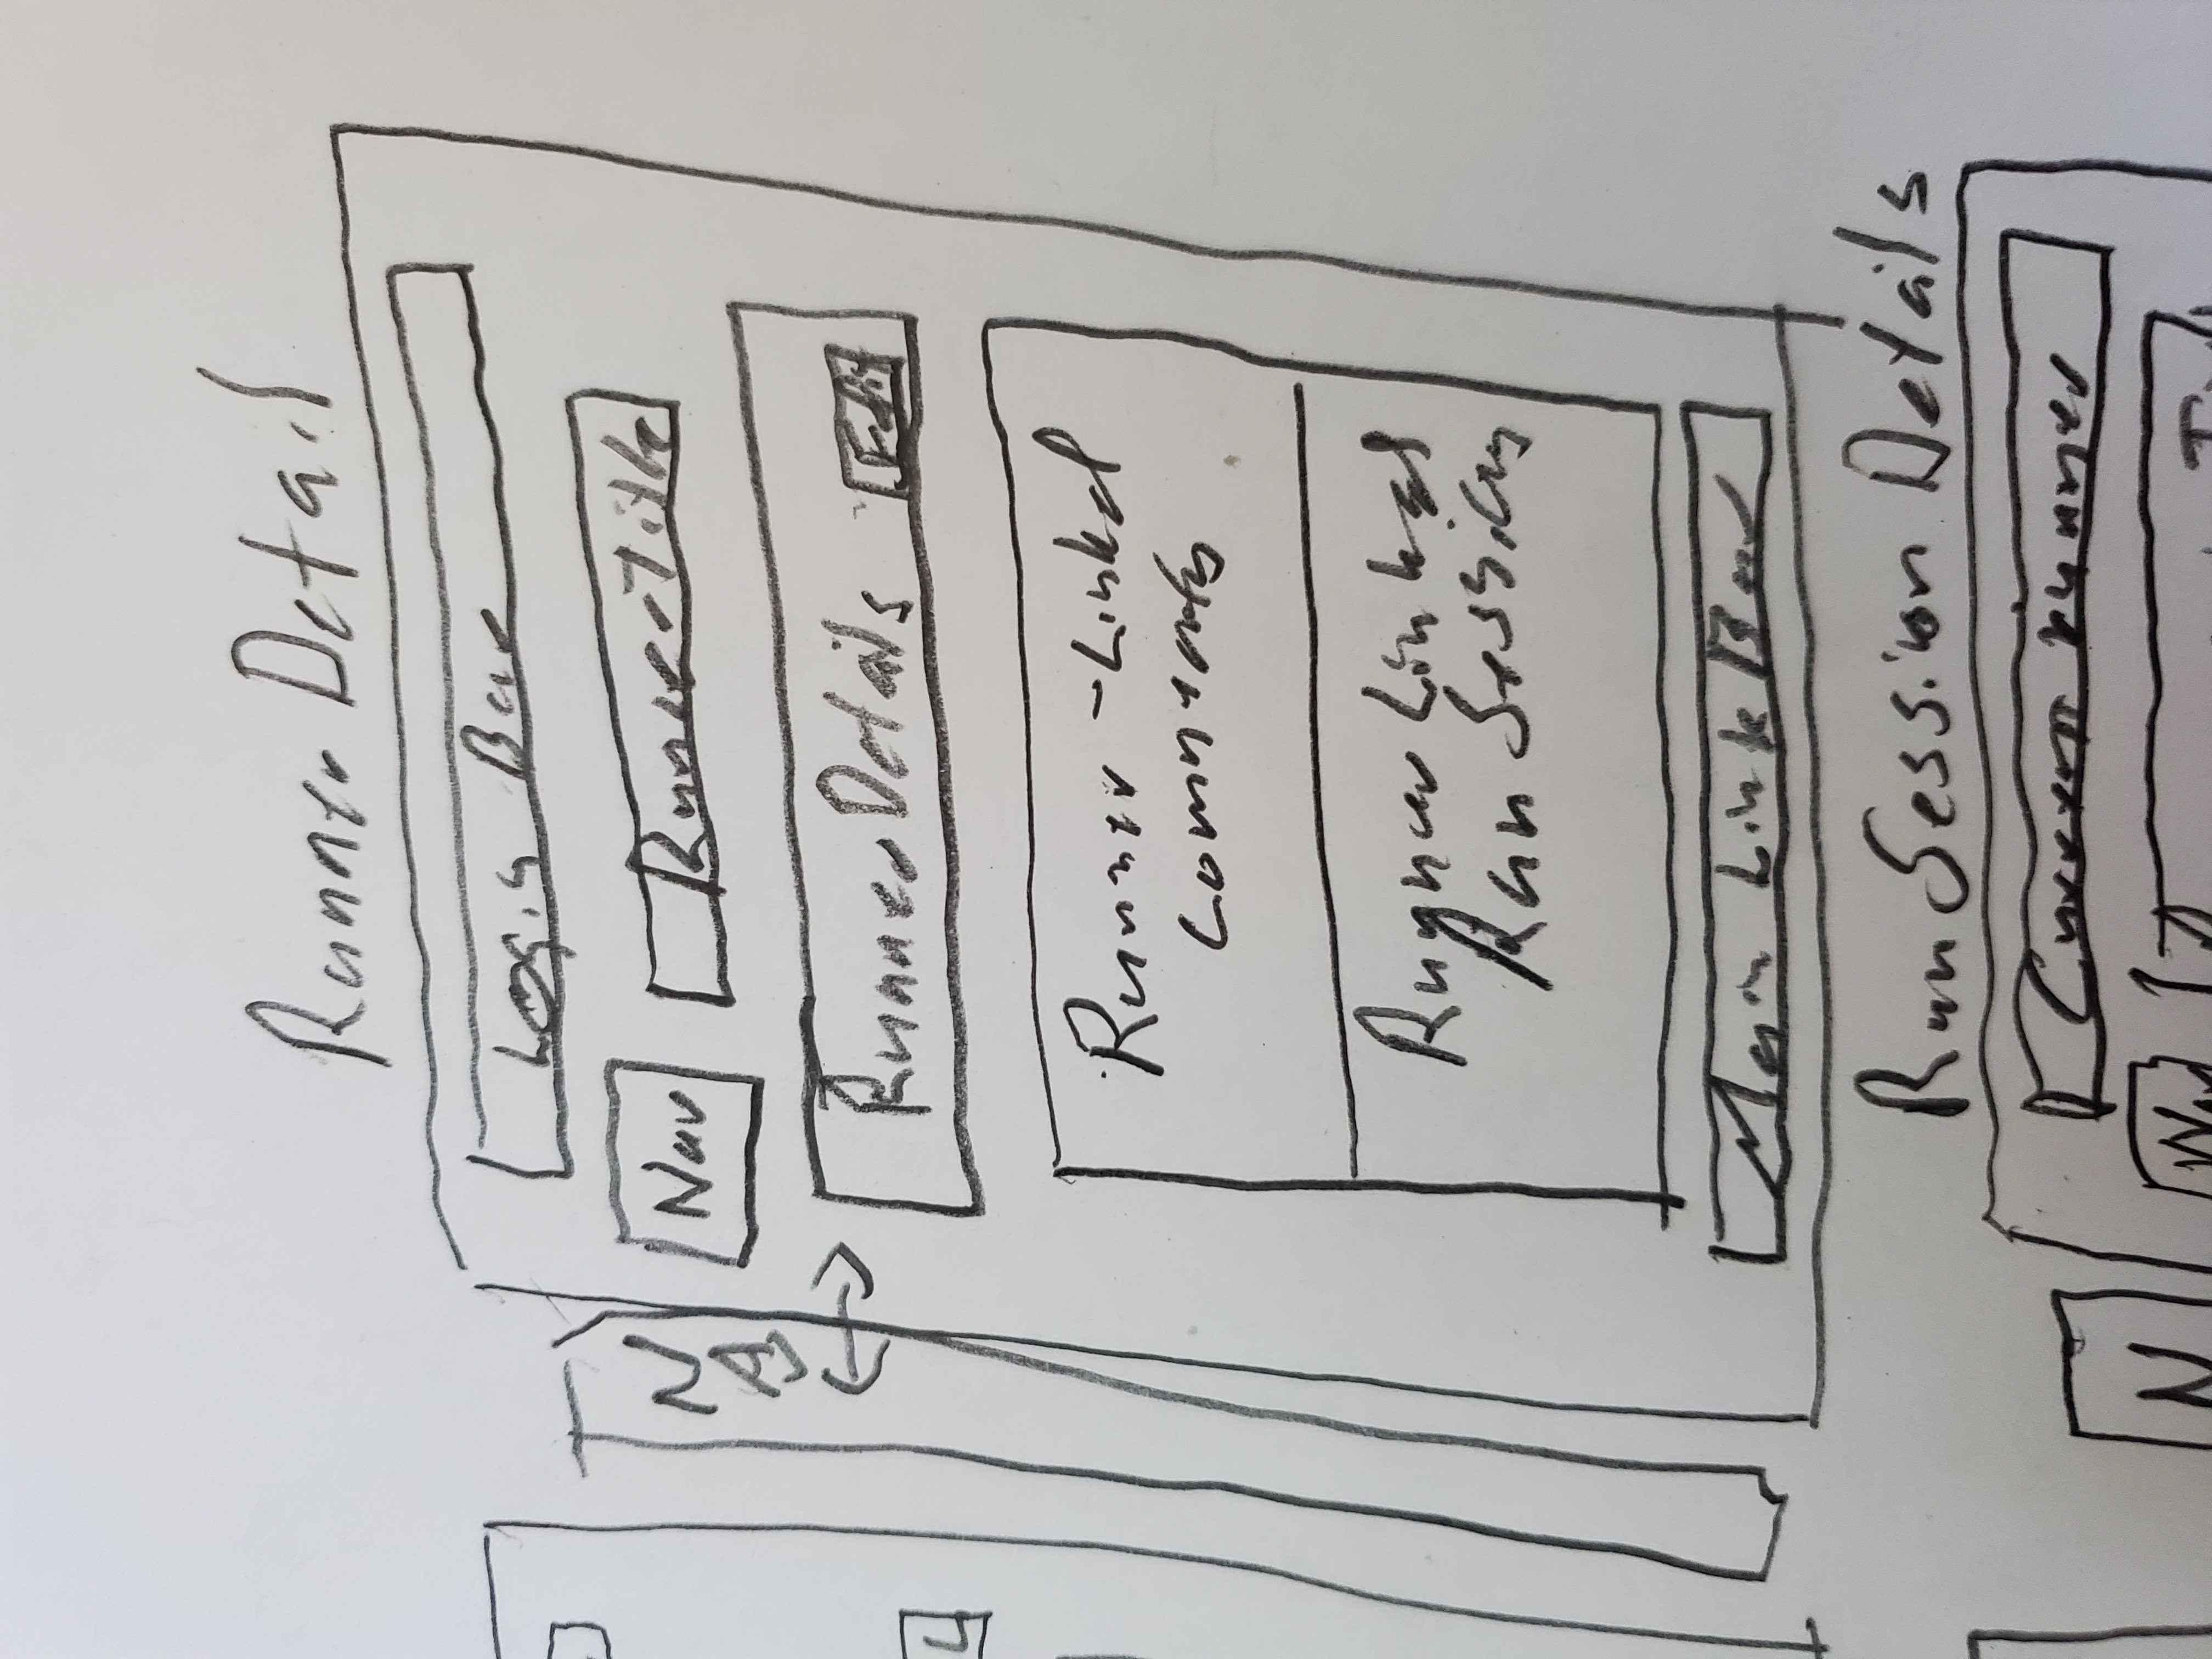 Runner Detail
Login Bar
NAV
Nav
Runner-Title
Runner Details
Edit
Runner-Linked
Comments
Runner Linked
Run Sessions
Main Link Bar
Run Session Details
Current runner
N
Nav